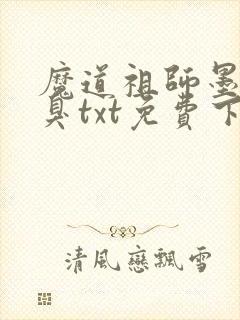 魔道祖師墨
臭txt免費下
清風戀飄雪